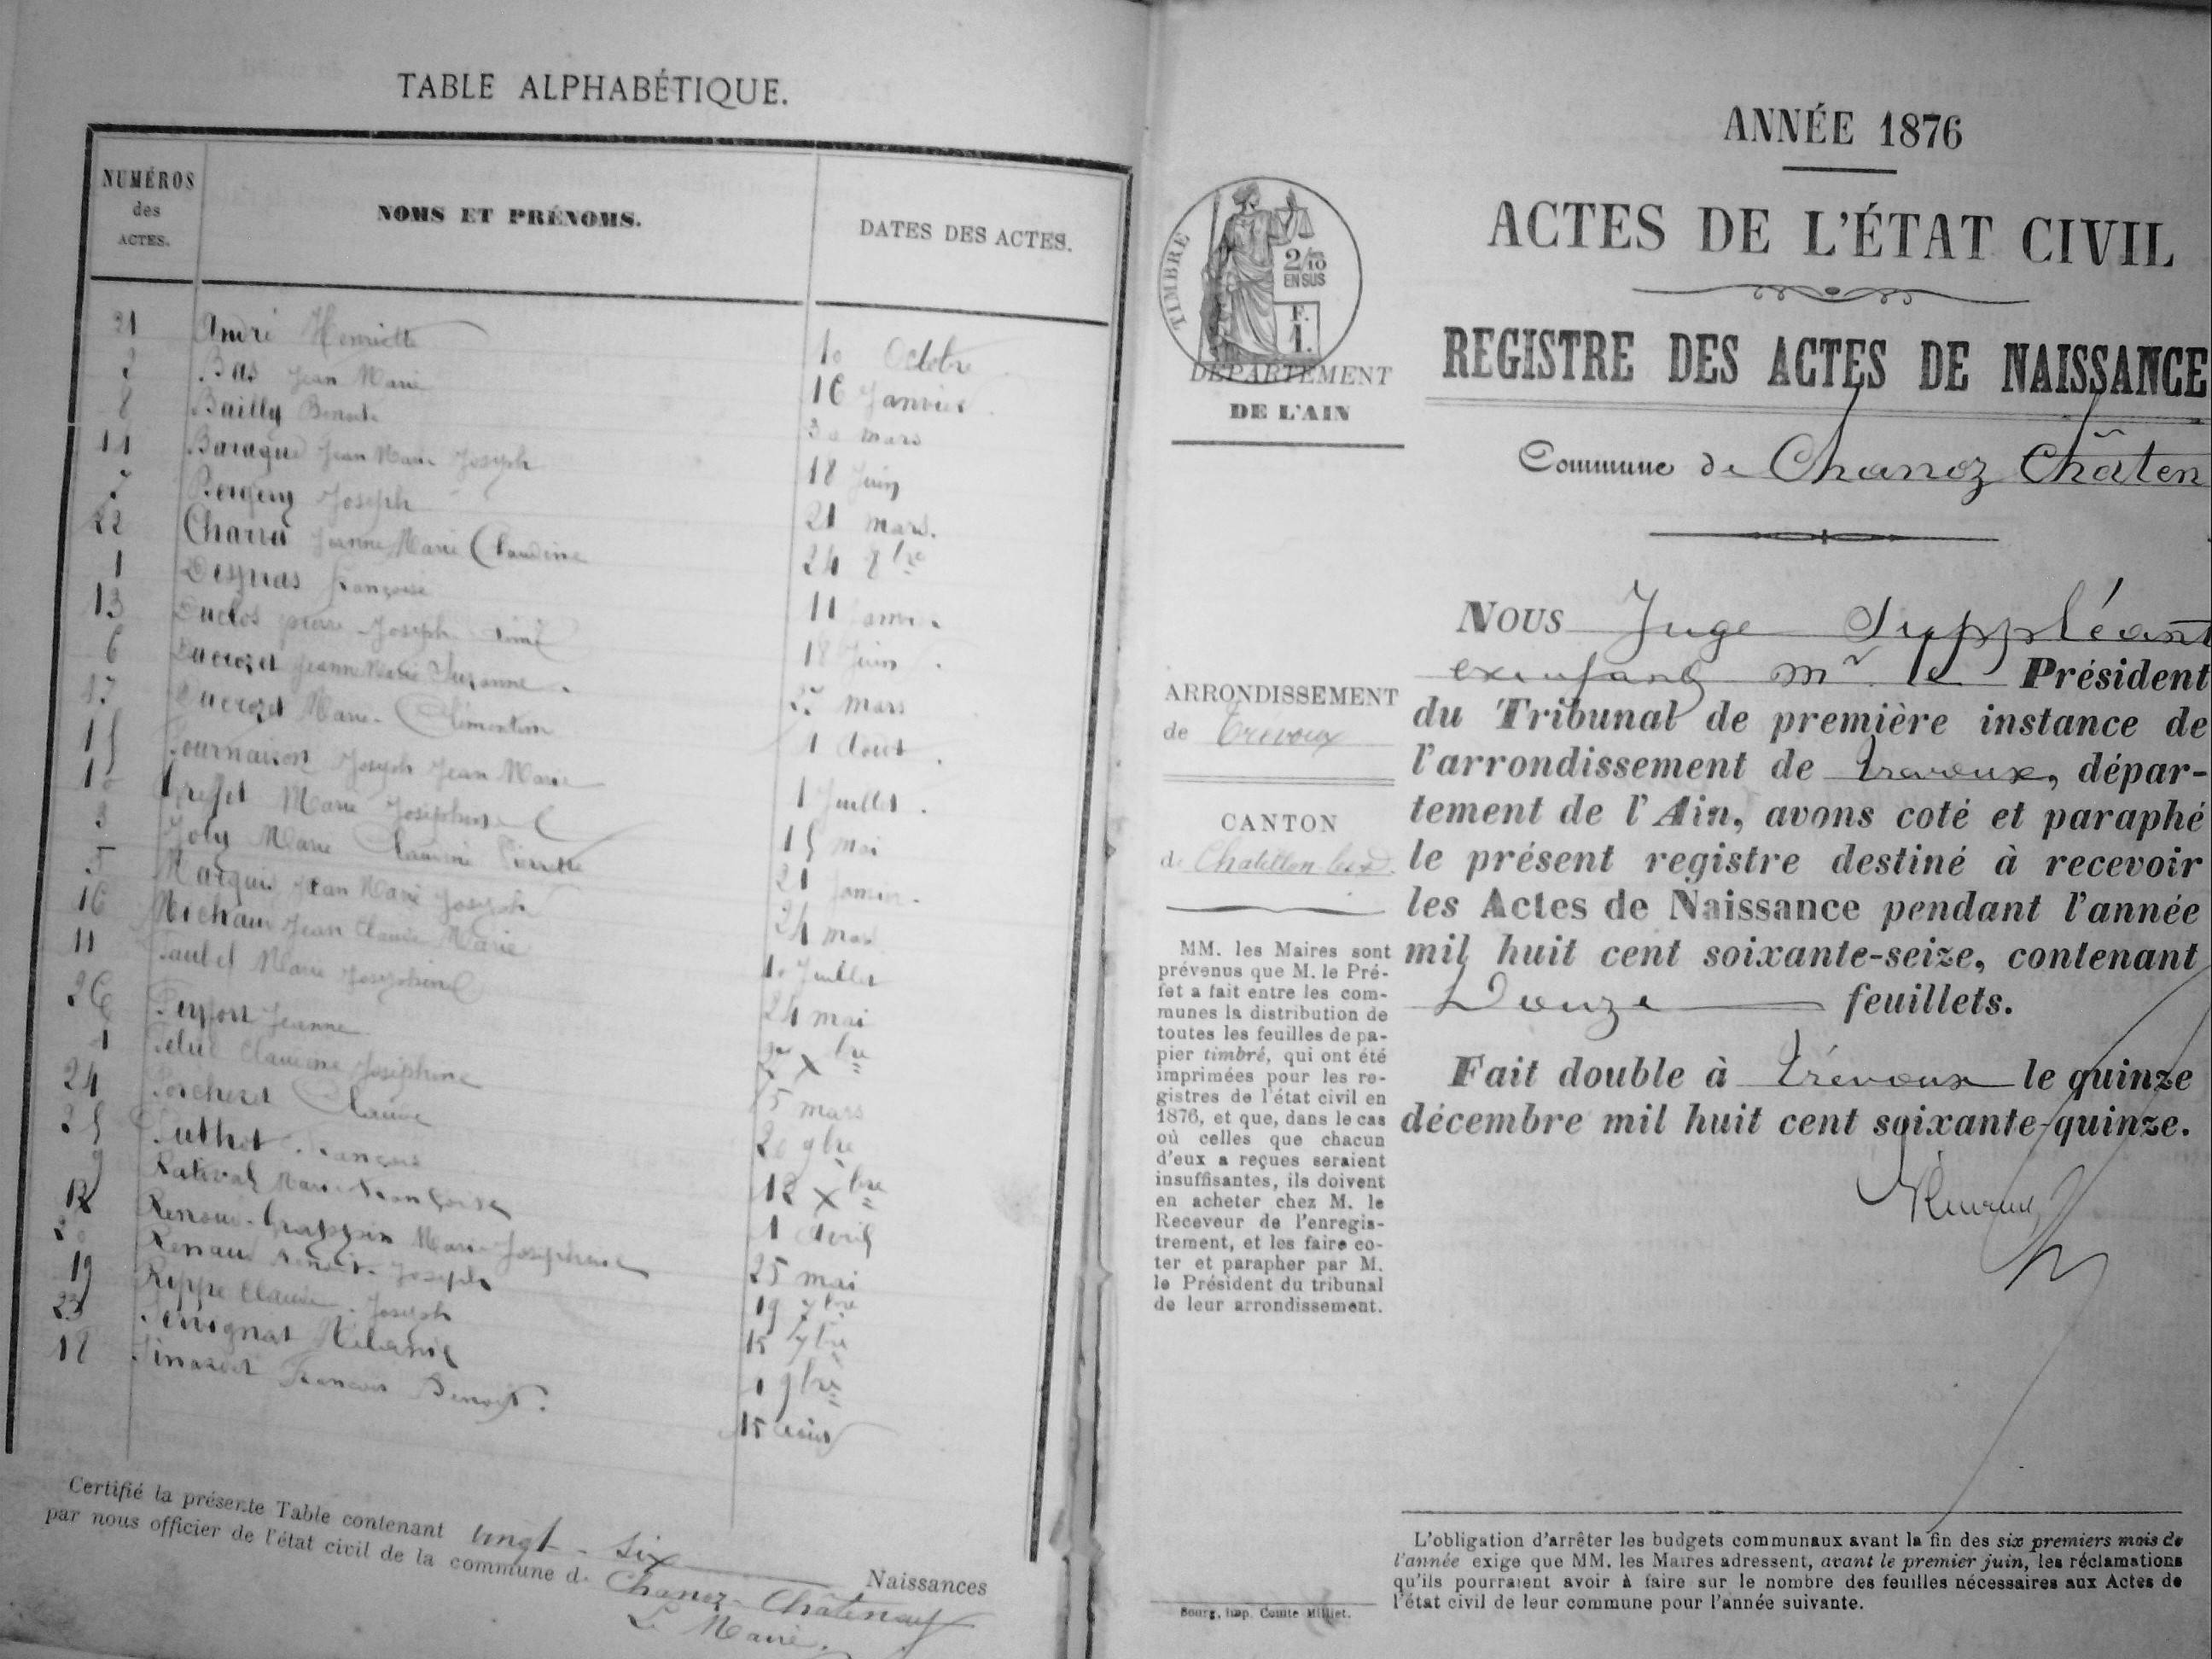 TABLE ALPHABÉTIQUE.
NUMÉROS
des
ACTES.
NOMS ET PRÉNOMS.
DATES DES ACTES.
21 André Henriette 10 Octobre
2 Bas Jean Marie 16 Janvier
8 Bailly Benoite 30 mars
14 Joseph 18 Juin
7 Joseph 21 mars.
22 Jeanne Marie Claudine 24 8bre
1 Françoise 11 Janv.
13 Duclos pierre Joseph 18 Juin
6 Ducrozet Jeanne Marie Suzanne. 27 mars
17 Ducrozet Marie Clémentine 1 Aout
15 Fournaison Joseph Jean Marie 1 Juillet.
10 Marie Josephine 15 mai
3 Joly Marie Claudine Pierrette 21 Janvier.
5 Jean Marie Joseph 24 mars
16 Michaud Jean Claude Marie 10 Juillet
11 Marie Josephine 24 mai
26 Jeanne Xbre
4 Claudine Joséphine 5 mars
24 Porcheret Claude 20 9bre
25 Puthod François 18 Xbre
9 Marie Françoise 1 Avril
12 Marie Josephine 25 mai
20 Renaud Benoit Joseph 19 7bre
19 Claude Joseph 15 7bre
23 Mélanie 1 9bre
18 François Benoit. 15 Aout
Certifié la présente Table contenant vingt-six Naissances
par nous officier de l'état civil de la commune de Chanoz-Châtenay
Le Maire.
ANNÉE 1876
ACTES DE L'ÉTAT CIVIL
REGISTRE DES ACTES DE NAISSANCE
Commune de Chanoz Châten
TIMBRE
2/10
EN SUS
F.
1.
DÉPARTEMENT
DE L'AIN
ARRONDISSEMENT
de Trévoux
CANTON
de Chatillon
MM. les Maires sont
prévenus que M. le Pré-
fet a fait entre les com-
munes la distribution de
toutes les feuilles de pa-
pier timbré, qui ont été
imprimées pour les re-
gistres de l'état civil en
1876, et que, dans le cas
où celles que chacun
d'eux a reçues seraient
insuffisantes, ils doivent
en acheter chez M. le
Receveur de l'enregis-
trement, et les faire co-
ter et parapher par M.
le Président du tribunal
de leur arrondissement.
NOUS Juge Suppléant
Mr le Président
du Tribunal de première instance de
l'arrondissement de Trevoux, dépar-
tement de l'Ain, avons coté et paraphé
le présent registre destiné à recevoir
les Actes de Naissance pendant l'année
mil huit cent soixante-seize, contenant
Douze feuillets.
Fait double à Trévoux le quinze
décembre mil huit cent soixante-quinze.
L'obligation d'arrêter les budgets communaux avant la fin des six premiers mois de
l'année exige que MM. les Maires adressent, avant le premier juin, les réclamations
qu'ils pourraient avoir à faire sur le nombre des feuilles nécessaires aux Actes de
l'état civil de leur commune pour l'année suivante.
Bourg, imp. Comte Milliet.